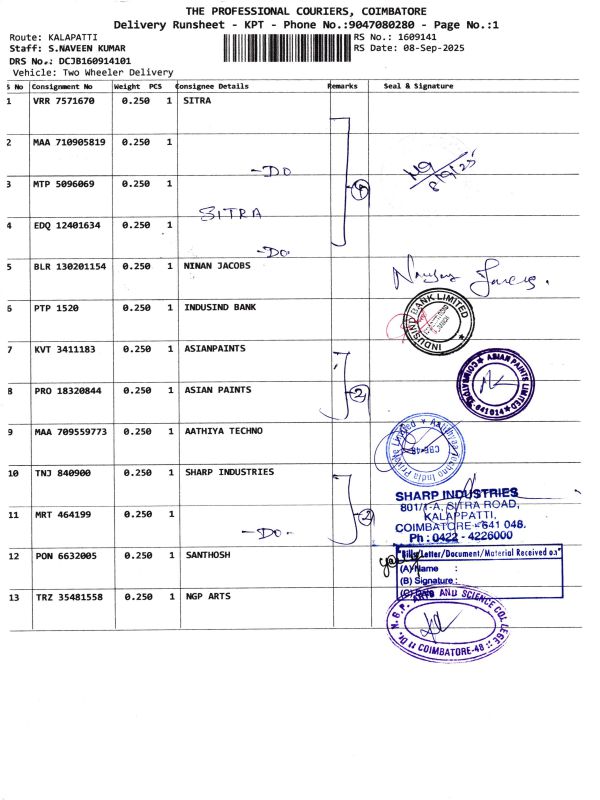 THE PROFESSIONAL COURIERS, COIMBATORE
Delivery Runsheet - KPT - Phone No.:9047080280 - Page No.:1
Route: KALAPATTI
Staff: S.NAVEEN KUMAR
DRS No.: DCJB160914101
Vehicle: Two Wheeler Delivery
RS No.: 1609141
RS Date: 08-Sep-2025
S No Consignment No Weight PCS Consignee Details Remarks Seal & Signature
1 VRR 7571670 0.250 1 SITRA
2 MAA 710905819 0.250 1
-DO
8/9/25
3 MTP 5096069 0.250 1
SITRA
4 EDQ 12401634 0.250 1
-DO-
5 BLR 130201154 0.250 1 NINAN JACOBS
6 PTP 1520 0.250 1 INDUSIND BANK
INDUSIND BANK LIMITED
7 KVT 3411183 0.250 1 ASIANPAINTS
ASIAN PAINTS LIMITED
641014
8 PRO 18320844 0.250 1 ASIAN PAINTS
2
9 MAA 709559773 0.250 1 AATHIYA TECHNO
Aathiyaa Techno India Private Limited
CBE-48
10 TNJ 840900 0.250 1 SHARP INDUSTRIES
SHARP INDUSTRIES
801/1-A, SITRA ROAD,
KALAPPATTI,
COIMBATORE - 641 048.
Ph : 0422 - 4226000
11 MRT 464199 0.250 1
-DO-
2
12 PON 6632005 0.250 1 SANTHOSH
"Bills/Letter/Document/Material Received
(A) Name :
(B) Signature :
(C) Date
13 TRZ 35481558 0.250 1 NGP ARTS
N.G.P. ARTS AND SCIENCE COLLEGE
COIMBATORE-48